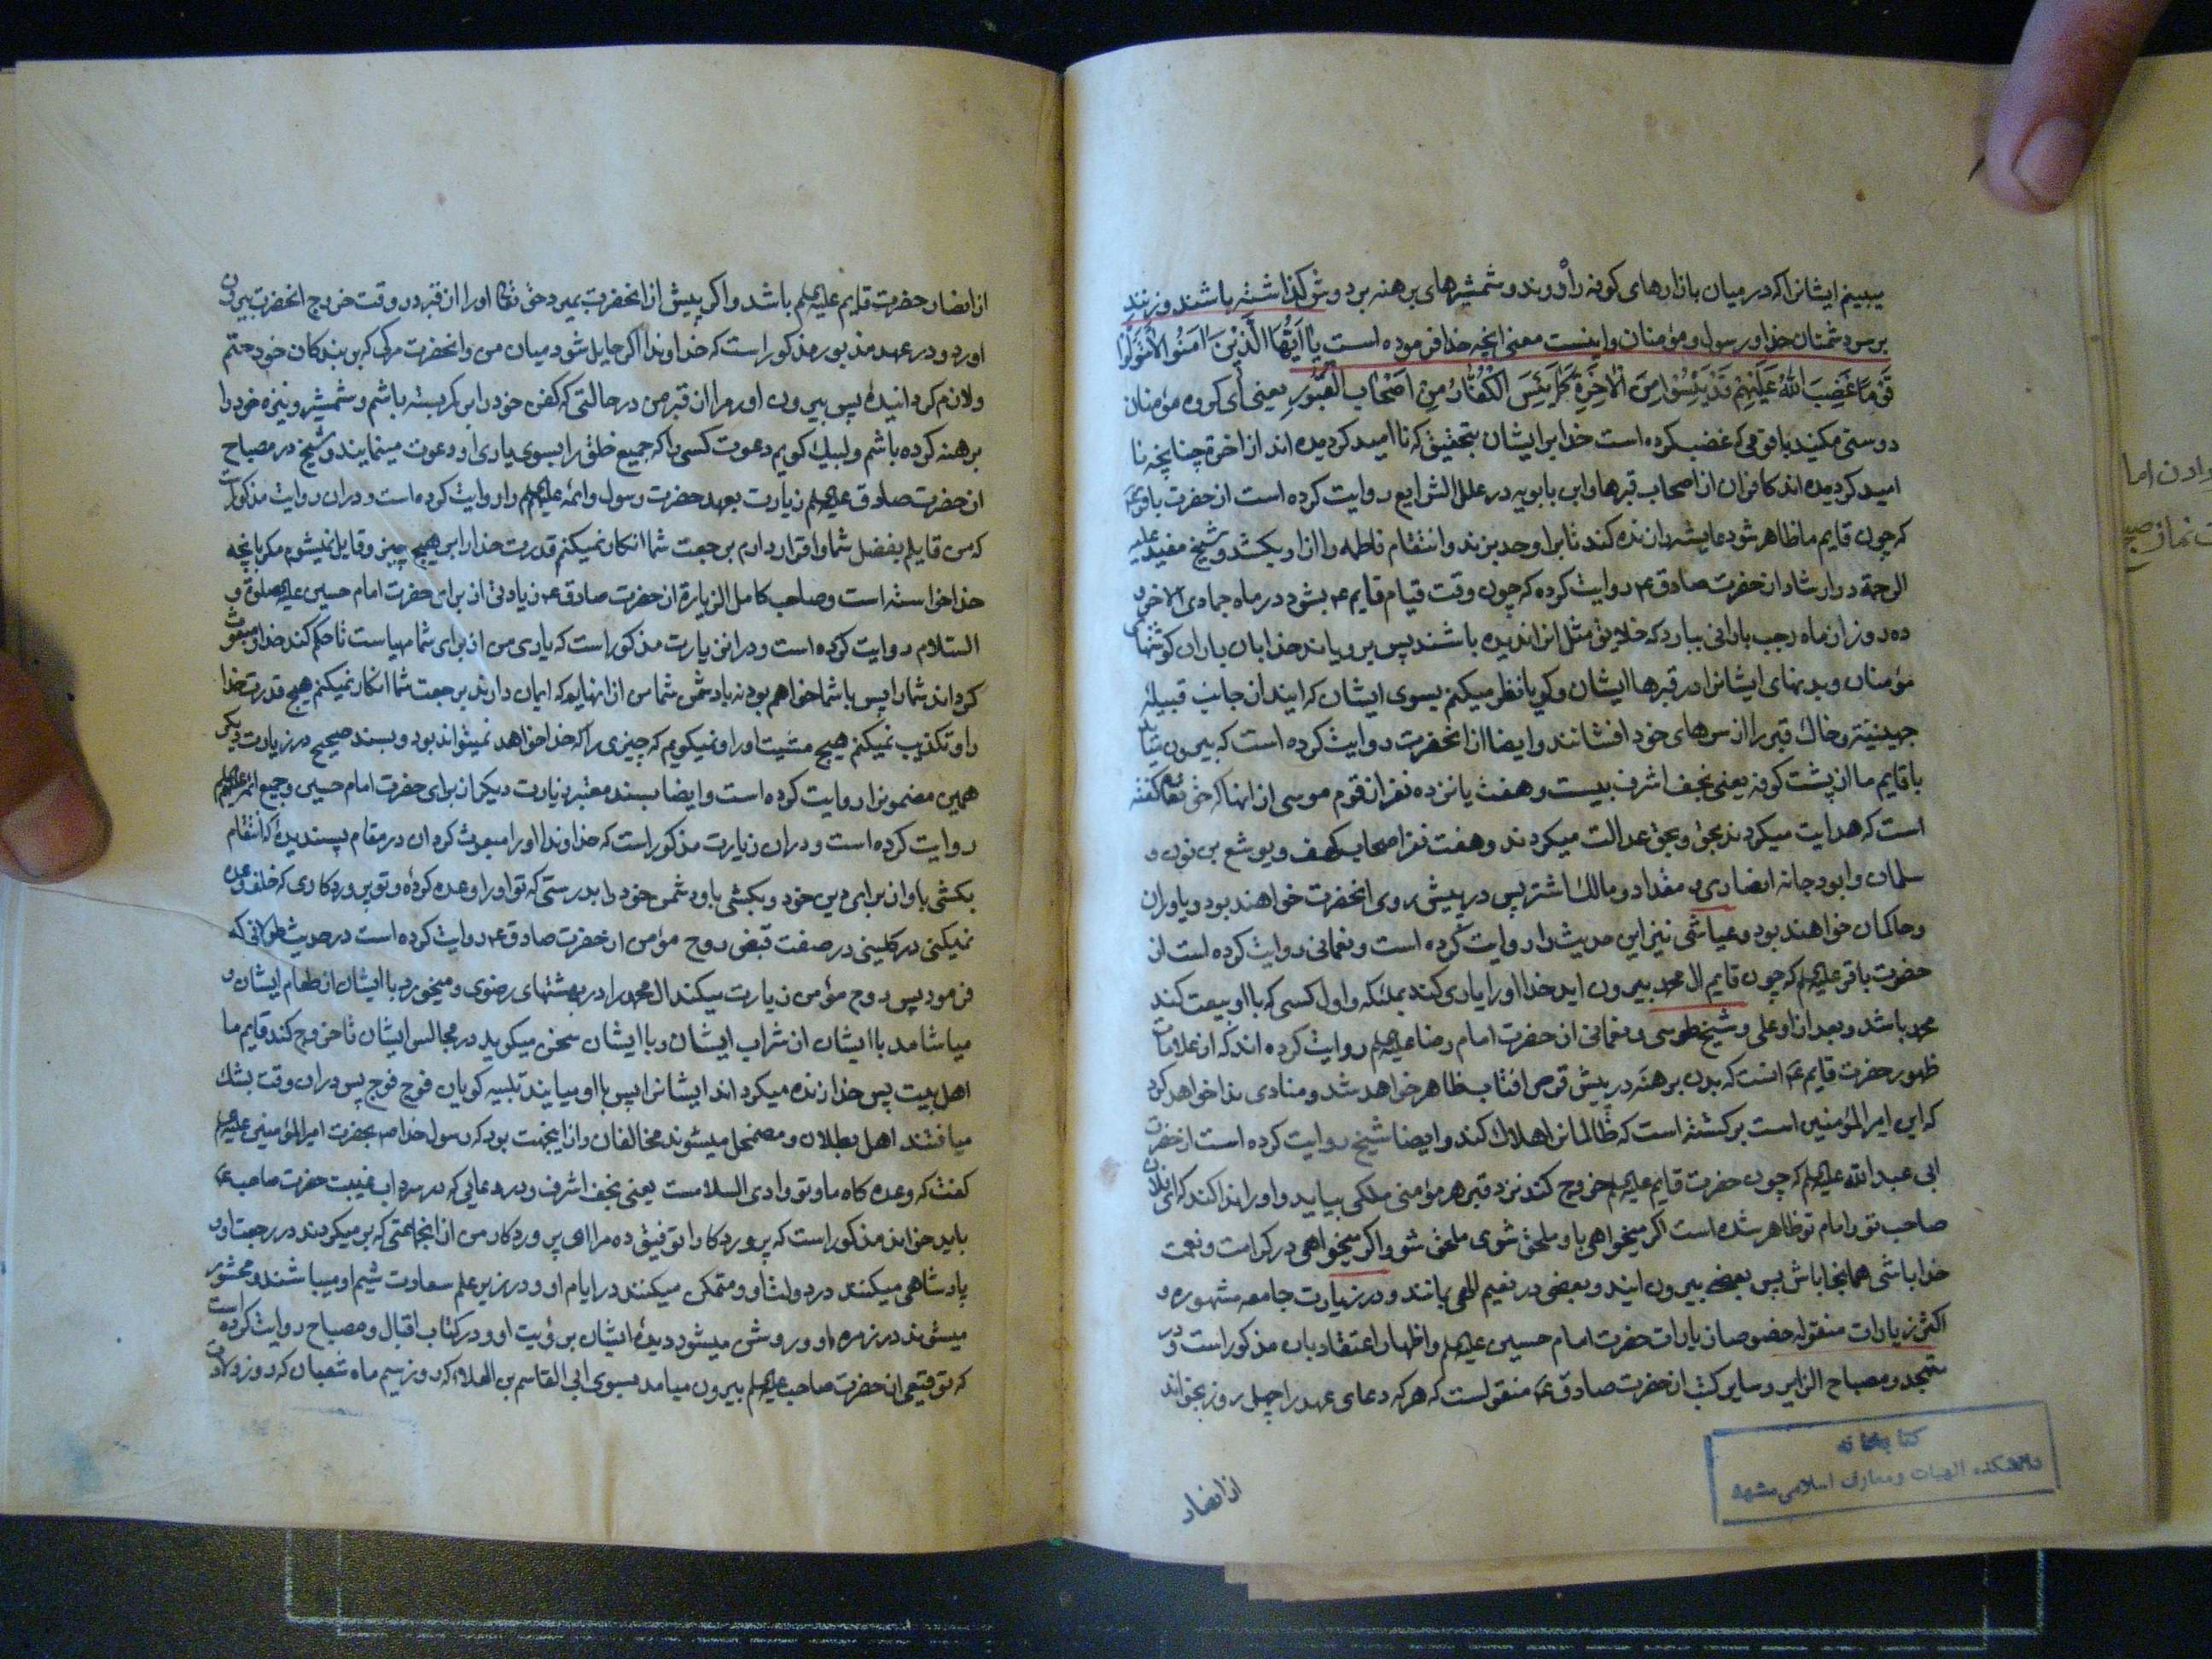 میبینم ایشانرا که در میان بازارهای کوفه راه روند و شمشیرهای برهنه بر دوش گذاشته باشند و زنند
بر سر دشمنان خدا و رسول و مؤمنان و اینست معنی انچه خدا فرموده است یا اَیُّهَا الَّذینَ اٰمَنُوا لاٰتَتَوَلَّوْا
قَوْمًا غَضِبَ اللّٰهُ عَلَیْهِمْ قَدْ یَئِسُوْا مِنَ الْاٰخِرَةِ کَمٰا یَئِسَ الْکُفّٰارُ مِنْ اَصْحٰابِ الْقُبُوْرِ یعنی ای کروه مؤمنان
دوستی مکنید با قومی که غضب کرده است خدا بر ایشان بتحقیق که نا امید کردیده اند از اخرة چنانچه نا
امید کردیده اند کافران از اصحاب قبرها و ابن بابویه در علل الشرایع روایت کرده است از حضرت باقر ع
که چون قایم ما ظاهر شود عایشه را زنده کند تا بر او حد بزند و انتقام فاطمه را از او بکشد و شیخ مفید علیه
الرحمة در ارشاد از حضرت صادق ع روایت کرده که چون وقت قیام قایم ع بشود در ماه جمادی الاخری و
ده روز از ماه رجب بارانی ببارد که خلایق مثل انرا ندیده باشند پس برویاند خدا بان باران کوشتهای
مؤمنان و بدنهای ایشانرا در قبرها ایشان و کویا نظر میکنم بسوی ایشان که ایند از جانب قبیله
جهینیّه و خاک قبر را از سرهای خود افشانند و ایضا از انحضرت روایت کرده است که بیرون میاید
با قایم ما از پشت کوفه یعنی نجف اشرف بیست و هفت یا نزده نفر از قوم موسی از انها که حق تعالی کفته
است که هدایت میکردند بحق و بحق عدالت میکردند و هفت نفر اصحاب کهف و یوشع بن نون و
سلمان و ابودجانه انصاری و مقداد و مالک اشتر پس در پیش روی انحضرت خواهند بود و یاوران
و حاکمان خواهند بود و عیاشی نیز این حدیث را روایت کرده است و نعمانی روایت کرده است از
حضرت باقر علیه السلم که چون قایم ال محمد بیرون اید خدا او را یاری کند بملئکه و اول کسی که با او بیعت کند
محمد باشد و بعد از او علی و شیخ طوسی و نعمانی از حضرت امام رضا علیه السلم روایت کرده اند که از علامات
ظهور حضرت قایم ع انست که بدن برهنه در پیش قرص افتاب ظاهر خواهد شد و منادی ندا خواهد کرد
که این امیر المؤمنین است برکشته است که ظالمانرا هلاک کند و ایضا شیخ روایت کرده است از حضرت
ابی عبد الله علیه السلم که چون حضرت قایم علیه السلم خروج کند نزد قبر هر مؤمنی ملکی بیاید و او را ندا کند که ای فلان
صاحب تو و امام تو ظاهر شده است اکر میخواهی باو ملحق شوی ملحق شو و اکر میخواهی در کرامت و نعمت
خدا باشی همانجا باش پس بعضی بیرون ایند و بعضی در نعیم الهی بمانند و در زیارت جامعه مشهوره و
اکثر زیارات منقوله خصوصا زیارات حضرت امام حسین علیه السلم و اظهار اعتقاد بان مذکور است و در
متهجد و مصباح الزایر و سایر کتب از حضرت صادق ع منقولست که هر که دعای عهد را چهل روز بخواند
از انصار
کتابخانه
دانشکده الهیات و معارف اسلامی مشهد
از انصار حضرت قایم علیه السلم باشد و اکر پیش از انحضرت بمیرد حق تعالی او را از قبر در وقت خروج انحضرت بیرون
اورد و در عهد مذبور مذکور است که خداوندا اکر حایل شود میان من و انحضرت مرک که بر بندکان خود حتم
و لازم کردانیدهٔ پس بیرون اور مرا از قبر من در حالتی که کفن خود را بر کمر بسته باشم و شمشیر و نیزه خود را
برهنه کرده باشم و لبیک کویم دعوت کسی را که جمیع خلق را بسوی یاری او دعوت مینمایند و شیخ در مصباح
از حضرت صادق علیه السلم زیارت بعید حضرت رسول و ائمه علیهم السلم را روایت کرده است و در ان روایت مذکور است
که من قایلم بفضل شما و اقرار دارم برجعت شما انکار نمیکنم قدرت خدا را بر هیچ چیز و قایل نمیشوم مکر بانچه
خدا خواسته است و صاحب کامل الزیارة از حضرت صادق ع زیارتی از برای حضرت امام حسین علیه الصلوة و
السلام روایت کرده است و در ان زیارت مذکور است که یاری من از برای شما مهیاست تا حکم کند خدا و مبعوث
کرداند شما را پس با شما خواهم بود نه با دشمن شما من از انهایم که ایمان دارند برجعت شما انکار نمیکنم هیچ قدرت خدا
را و تکذیب نمیکنم هیچ مشیت او را و نمیکویم که چیزی را که خدا خواهد نمیتواند بود و بسند صحیح در زیارت دیکر
همین مضمونرا روایت کرده است و ایضا بسند معتبر زیارت دیکر از برای حضرت امام حسین و جمیع ائمه علیهم السلم
روایت کرده است و در ان زیارت مذکور است که خداوندا او را مبعوث کردان در مقام پسندیدهٔ که انتقام
بکشی باو از برای دین خود و بکشی باو دشمن خود را بدرستی که تو او را وعده کردهٔ و تو پروردکاری که خلف وعده
نمیکنی در کلینی در صفت قبض روح مؤمن از حضرت صادق ع روایت کرده است در حدیث طولانی که
فرمود پس روح مؤمن زیارت میکند ال محمد را در بهشتهای رضوی و میخورد با ایشان از طعام ایشان و
میاشامد با ایشان از شراب ایشان و با ایشان سخن میکوید در مجالس ایشان تا خروج کند قایم ما
اهل بیت پس خدا زنده میکرداند ایشانرا پس با او میایند تلبیه کویان فوج فوج پس در ان وقت بشک
میافتند اهل بطلان و مضمحل میشوند مخالفان و از اینجهت بود که رسول خدا ص بحضرت امیر المؤمنین علیه السلم
کفت که وعده کاه ما و تو وادی السلامست یعنی نجف اشرف و در دعایی که در سرداب غیبت حضرت صاحب ع
باید خواند مذکور است که پروردکارا توفیق ده مرا ای پروردکار من از انجماعتی که بر میکردند در رجعت او و
پادشاهی میکنند در دولت او و متمکن میکنند در ایام او و در زیر علم سعادت شیم او میباشند و محشور
میشوند در زمره او و روشن میشود دیدهٔ ایشان برؤیت او و در کتاب اقبال و مصباح روایت کرده است
که توقیعی از حضرت صاحب علیه السلم بیرون میامد بسوی ابی القاسم بن العلاء که روز سیم ماه شعبان که روز ولادت